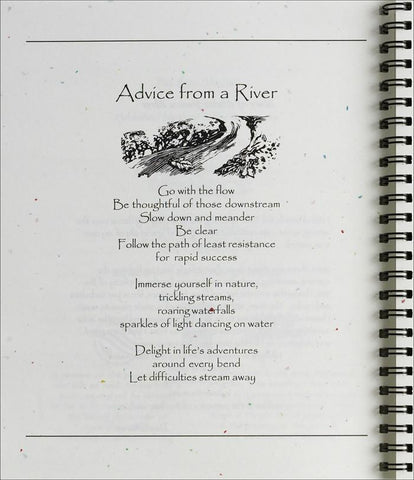 Advice from a River
Go with the flow
Be thoughtful of those downstream
Slow down and meander
Be clear
Follow the path of least resistance
for rapid success
Immerse yourself in nature,
trickling streams,
roaring waterfalls
sparkles of light dancing on water
Delight in life's adventures
around every bend
Let difficulties stream away